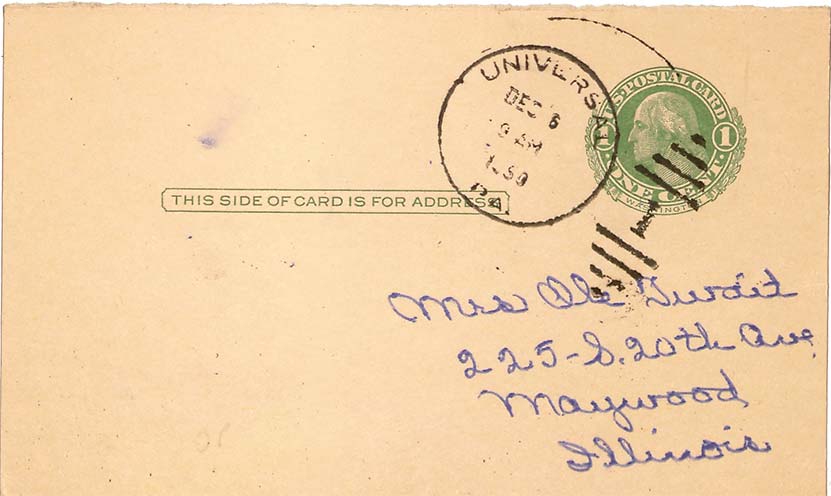 UNIVERSAL
DEC 6
9 AM
PA.
U.S. POSTAL CARD
1 1
ONE CENT.
WASHINGTON
THIS SIDE OF CARD IS FOR ADDRESS
Mrs Ole
225-S. 20th Ave
Maywood
Illinois